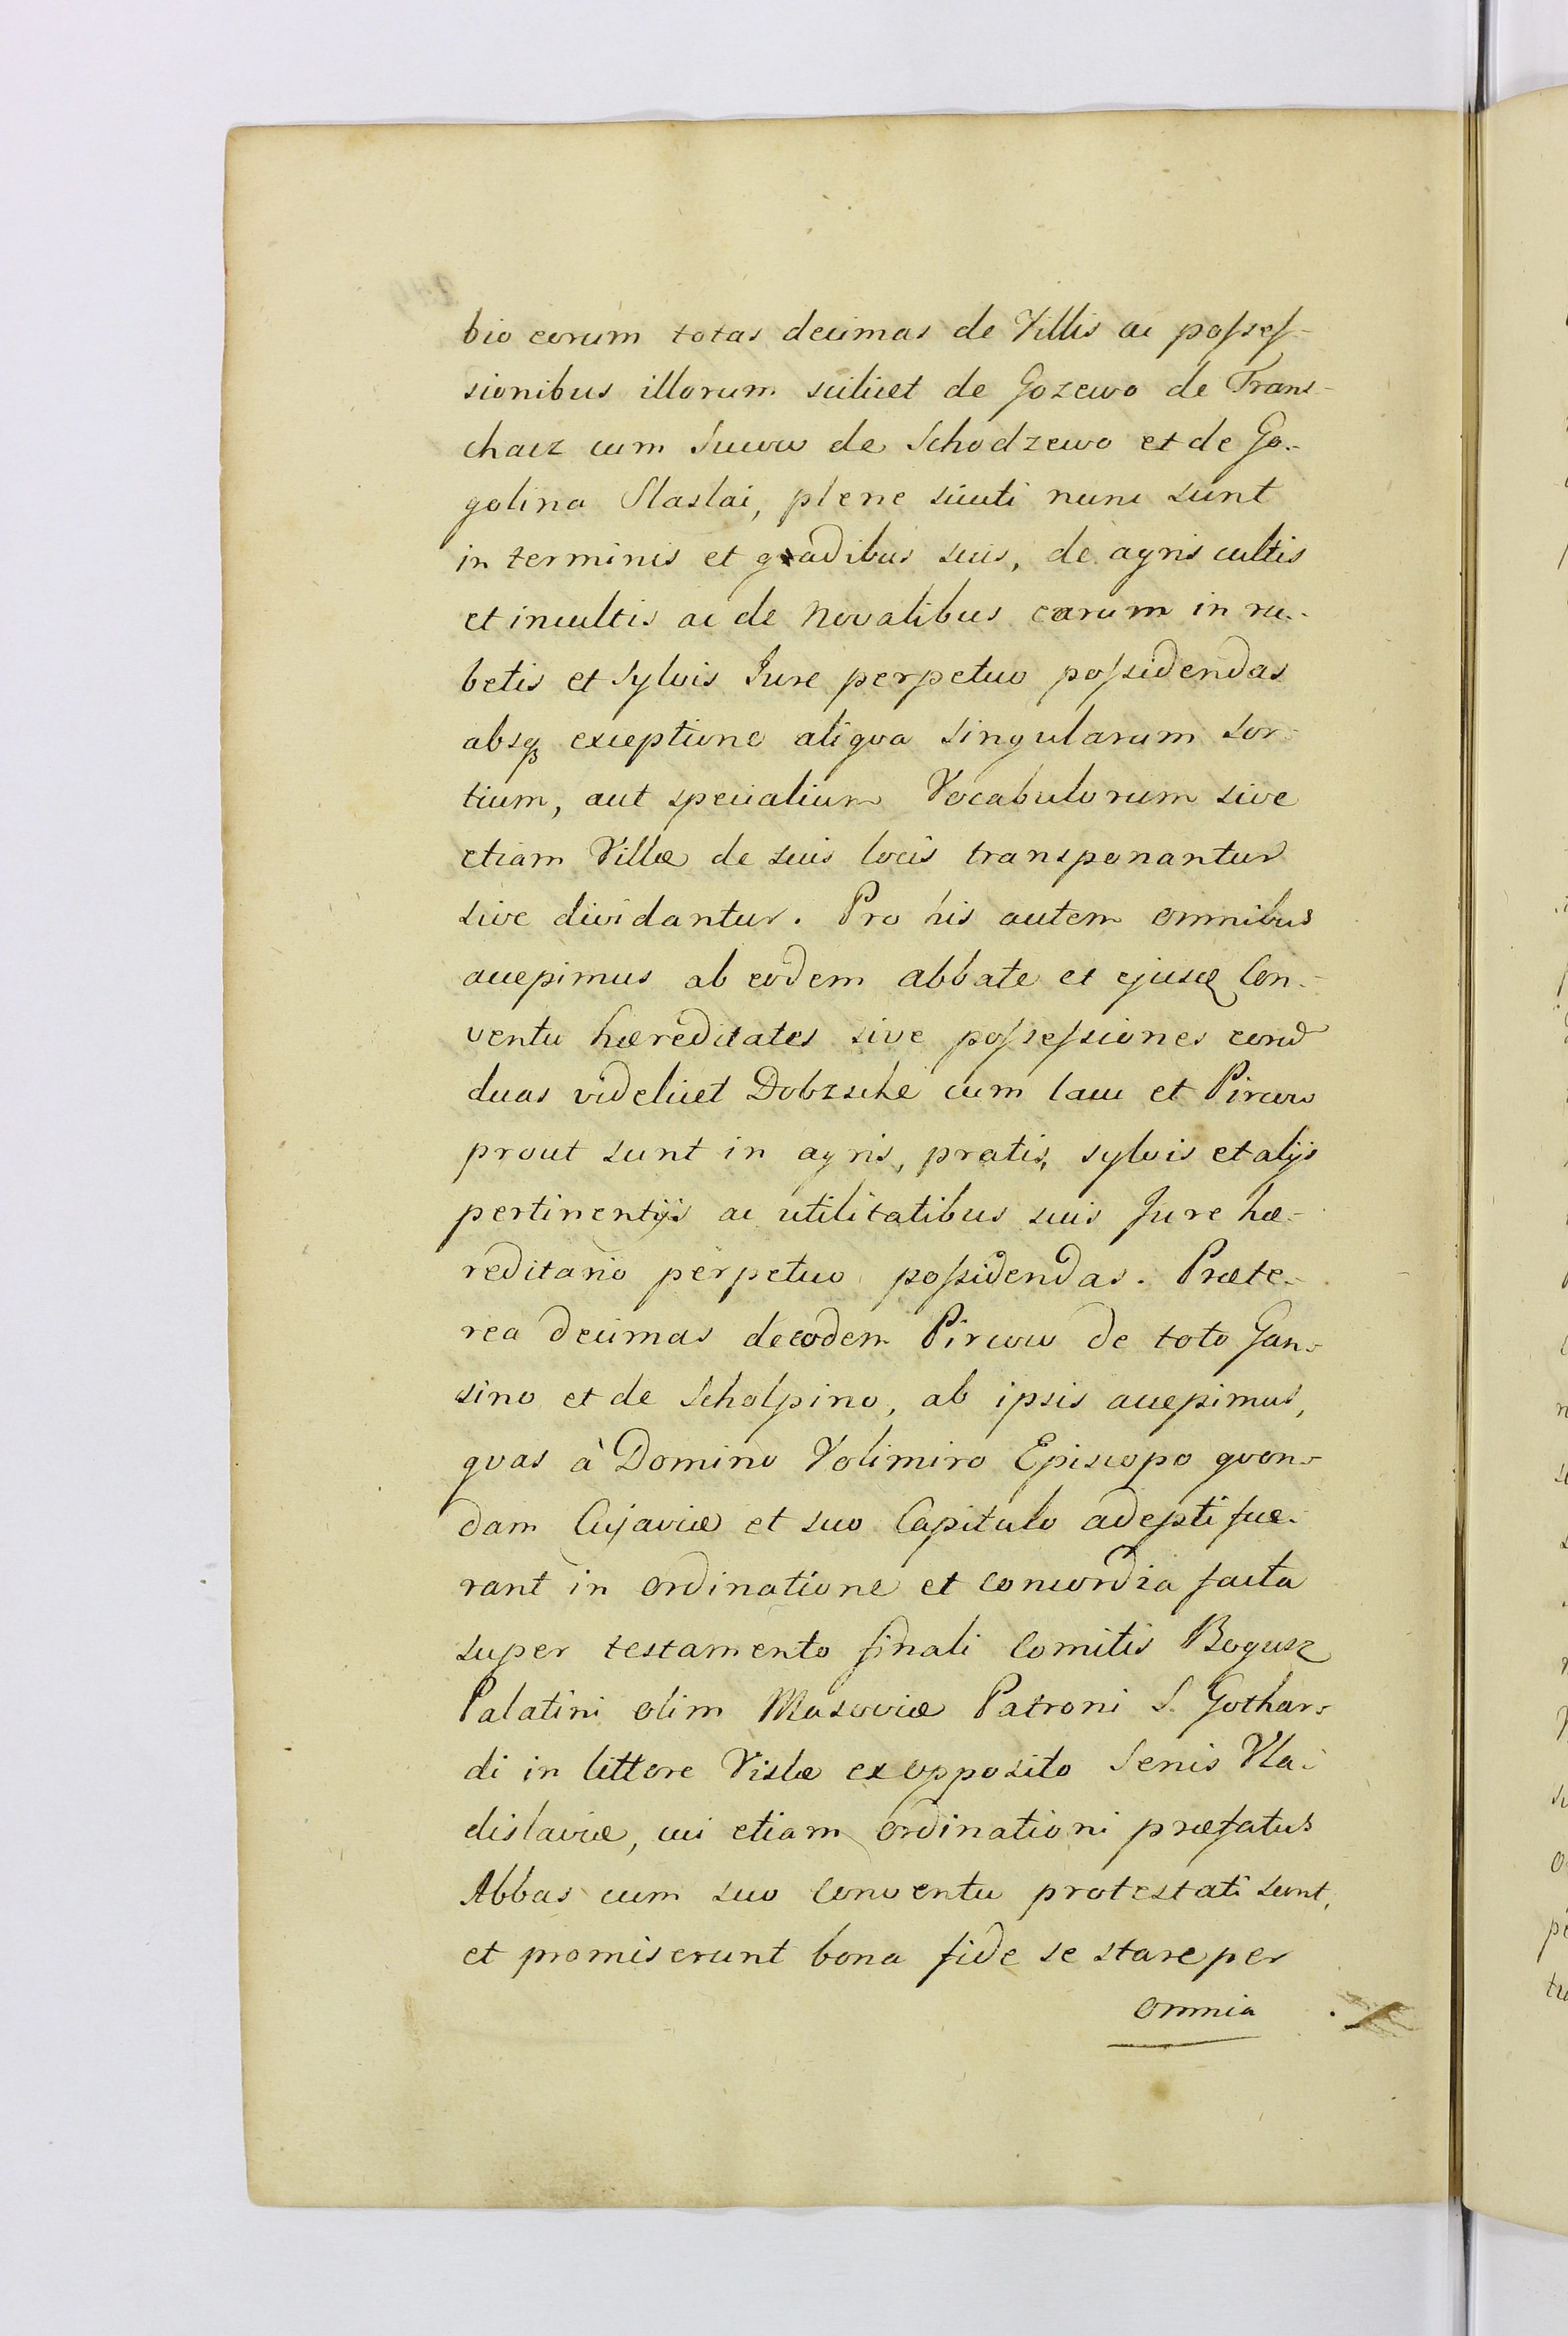 bio eorum totas decimas de Villis ac possess-
sionibus illorum scilicet de Gozewo de Trans-
chacz cum Sucew de Schodzewo et de Go-
golina Slaslai, plene sicuti nunc sunt
in terminis et gradibus suis, de agris cultis
et incultis ac de novalibus earum in ru-
betis et sylvis Jure perpetuo possidendas
absq exceptione aliqva singularum sor-
tium, aut specialium Vocabulorum sive
etiam Villæ de suis locis transponantur
sive dividantur. Pro his autem omnibus
accepimus ab eodem abbate et ejusq Con-
ventu hæreditates sive possessiones eorum
duas videlicet Dobzsche cum lacu et Pircow
prout sunt in agris, pratis, sylvis et alijs
pertinentijs ac utilitatibus suis Jure hæ-
reditario perpetuo possidendas. Præte-
rea decimas de eodem Pircow de toto Gan-
sino et de Scholpino, ab ipsis accepimus,
qvas à Domino Volimiro Episcopo qvon-
dam Cujaviæ et suo Capitulo adepti fue-
rant in ordinatione et concordia facta
super testamento finali Comitis Bogusz
Palatini olim Masoviæ Patroni S. Gothar-
di in littore Vislæ ex opposito Senis Vla-
dislaviæ, cui etiam ordinationi præfatus
Abbas cum suo Conventu protestati sunt,
et promiserunt bona fide se stare per
omnia